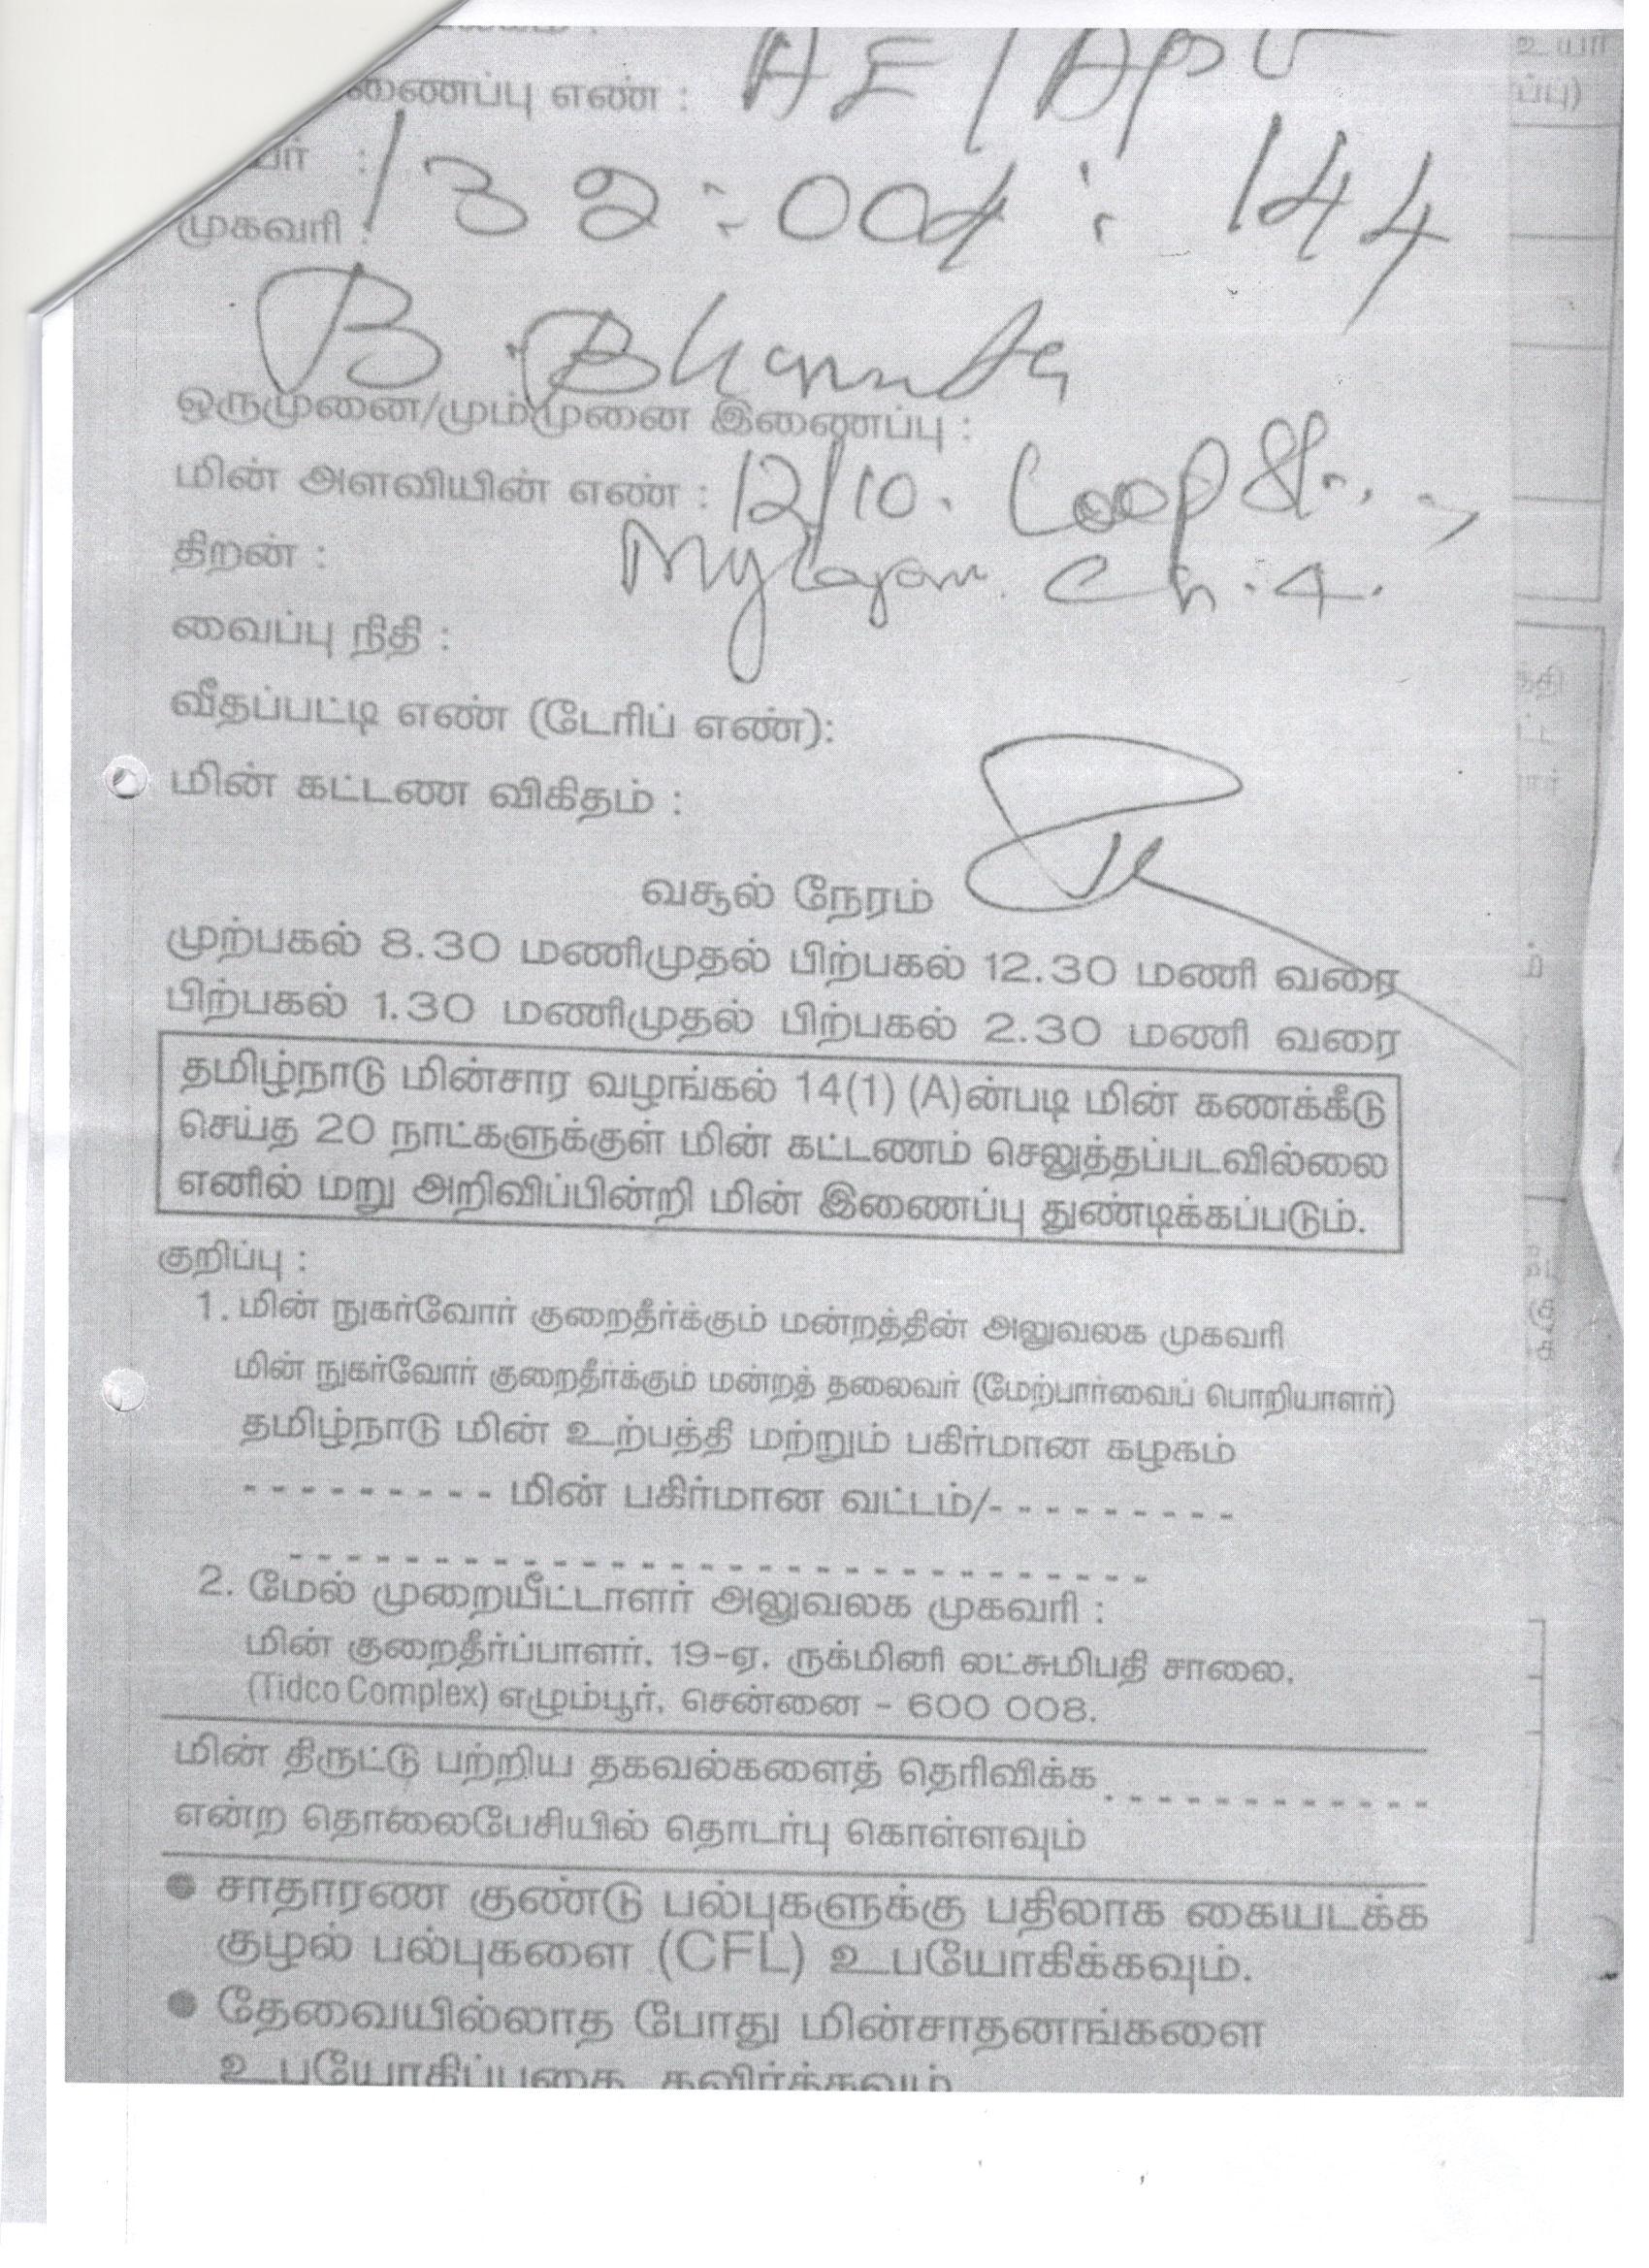 எண் : AE/
முகவரி : 132:-004: 144
B.
ஒருமுனை/மும்முனை இணைப்பு :
மின் அளவியின் எண் : 12/10. Loop St.,
திறன் : Mylapore. Ch. 4.
வைப்பு நிதி :
வீதப்பட்டி எண் (டேரிப் எண்):
மின் கட்டண விகிதம் :
வசூல் நேரம்
முற்பகல் 8.30 மணிமுதல் பிற்பகல் 12.30 மணி வரை
பிற்பகல் 1.30 மணிமுதல் பிற்பகல் 2.30 மணி வரை
தமிழ்நாடு மின்சார வழங்கல் 14(1) (A)ன்படி மின் கணக்கீடு
செய்த 20 நாட்களுக்குள் மின் கட்டணம் செலுத்தப்படவில்லை
எனில் மறு அறிவிப்பின்றி மின் இணைப்பு துண்டிக்கப்படும்.
குறிப்பு :
1. மின் நுகர்வோர் குறைதீர்க்கும் மன்றத்தின் அலுவலக முகவரி
மின் நுகர்வோர் குறைதீர்க்கும் மன்றத் தலைவர் (மேற்பார்வைப் பொறியாளர்)
தமிழ்நாடு மின் உற்பத்தி மற்றும் பகிர்மான கழகம்
- - - - - - - - - மின் பகிர்மான வட்டம்/- - - - - - - - -
2. மேல் முறையீட்டாளர் அலுவலக முகவரி :
மின் குறைதீர்ப்பாளர், 19-ஏ, ருக்மினி லட்சுமிபதி சாலை,
(Tidco Complex) எழும்பூர், சென்னை - 600 008.
மின் திருட்டு பற்றிய தகவல்களைத் தெரிவிக்க - - - - - - - - - - - -
என்ற தொலைபேசியில் தொடர்பு கொள்ளவும்
● சாதாரண குண்டு பல்புகளுக்கு பதிலாக கையடக்க
குழல் பல்புகளை (CFL) உபயோகிக்கவும்.
● தேவையில்லாத போது மின்சாதனங்களை
உபயோகிப்பதை தவிர்க்கவும்